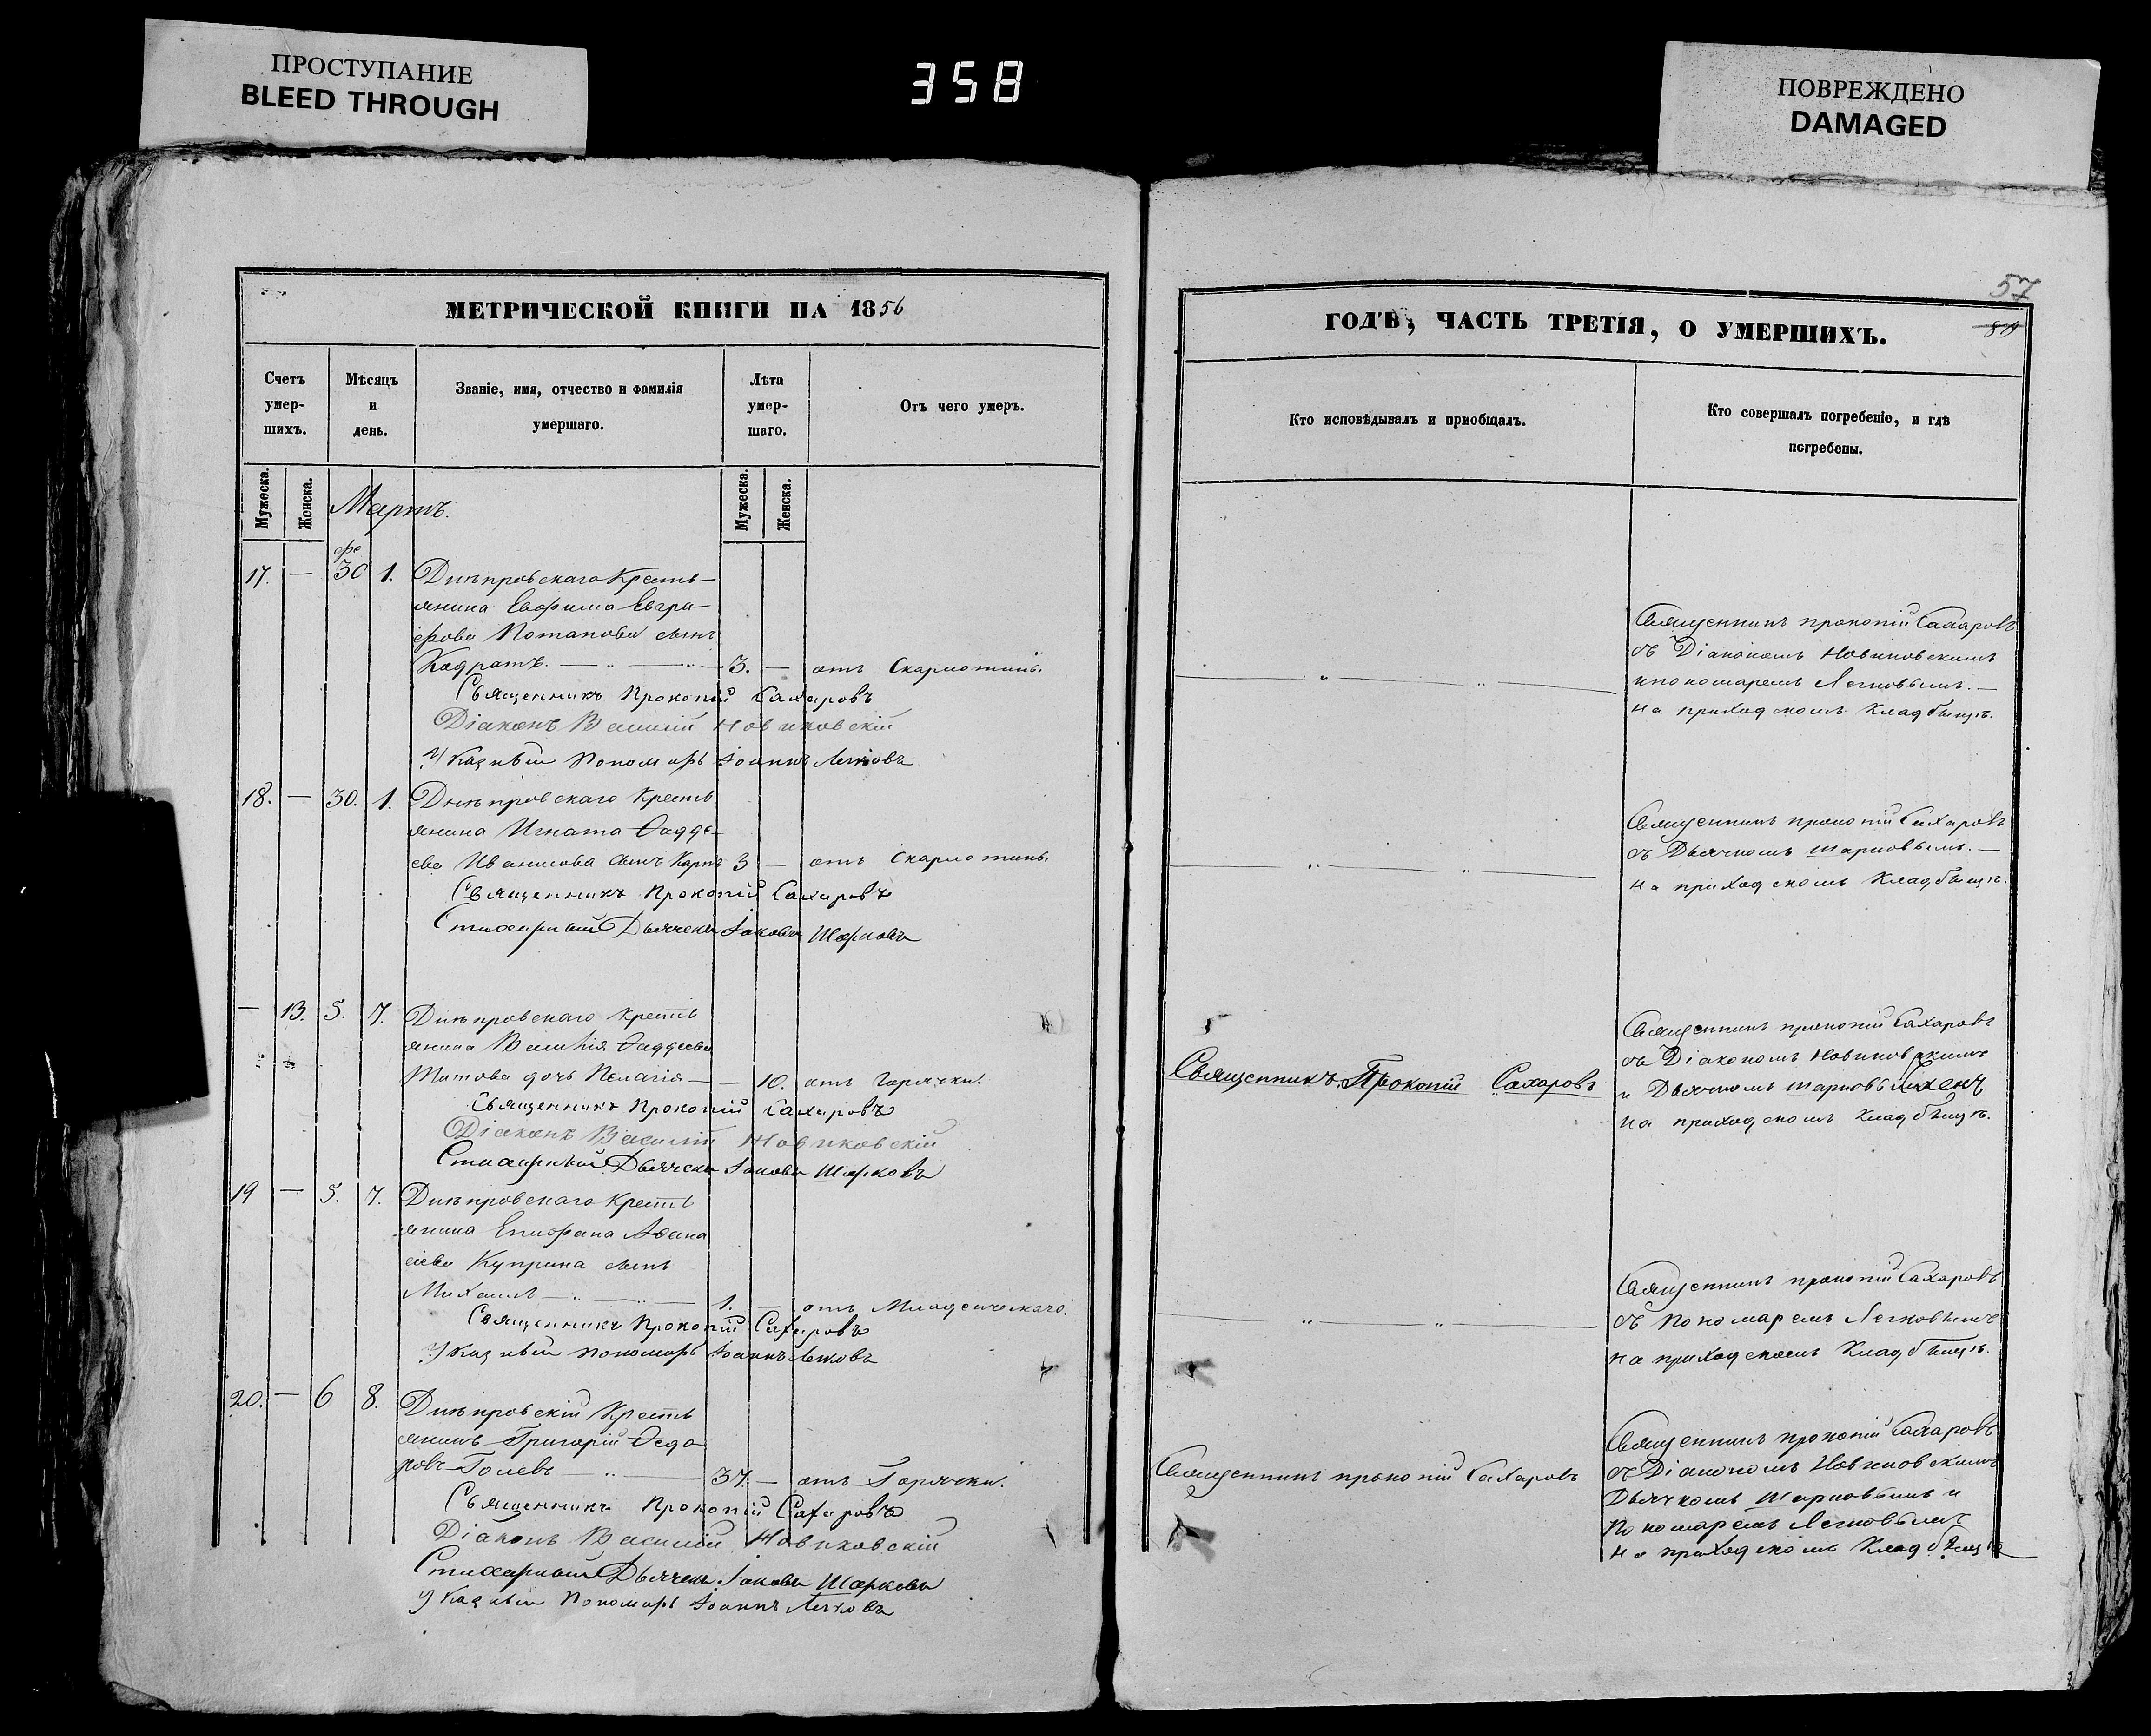 ПРОСТУПАНИЕ
BLEED THROUGH
358
ПОВРЕЖДЕНО
DAMAGED
МЕТРИЧЕСКОЙ КНИГИ НА 1856
Счетъ умер- шихъ.
Мѣсяцъ и день.
Званіе, имя, отчество и фамилія умершаго.
Лѣта умер- шаго.
Отъ чего умеръ.
Мужеска. Женска.
Мартъ.
Мужеска. Женска.
17. — 30 1. Днѣпровскаго Кресть-
янина Евфима Евгра-
фова Потапова сынъ
Кодратъ. — 3. — отъ Скарлотины.
Священникъ Прокопій Сахаровъ
Діаконъ Василій Новиковскій
Указный Пономарь Іоаннъ Легковъ
18. — 30. 1. Днѣпровскаго Кресть
янина Игната Ѳадде-
ева Иванисова сынъ Карпъ 3 — отъ Скарлотины.
Священникъ Прокопій Сахаровъ
Стихарный Дьячекъ Іаковъ Шарковъ
— 13. 5. 7. Днѣпровскаго Кресть
янина Василія Ѳаддеева
Титова дочь Пелагія — — 10. отъ Горячки.
Священникъ Прокопій Сахаровъ
Діаконъ Василій Новиковскій
Стихарный Дьячекъ Іаковъ Шарковъ
19 — 5. 7. Днѣпровскаго Кресть
янина Епифана Аѳана
сіева Куприна сынъ
Михаилъ — 1. — отъ Младенческаго.
Священникъ Прокопій Сахаровъ
Указный Пономарь Іоаннъ Легковъ
20. — 6 8. Днѣпровскій Кресть
янинъ Григорій Ѳедо
ровъ — 37. — отъ Горячки.
Священникъ Прокопій Сахаровъ
Діаконъ Василій Новиковскій
Стихарный Дьячекъ Іаковъ Шарковъ
Указный Пономарь Іоаннъ Легковъ
57
ГОДЪ, ЧАСТЬ ТРЕТІЯ, О УМЕРШИХЪ.
Кто исповѣдывалъ и пріобщалъ.
Кто совершалъ погребеніо, и гдѣ погребены.
Священникъ прокопій Сахаровъ
съ Діакономъ Новиковскимъ
и пономаремъ Легковымъ. —
на приходскомъ Кладбищѣ.
Священникъ прокопій Сахаровъ
съ Дьячкомъ Шарковымъ. —
на приходскомъ Кладбищѣ.
Священникъ Прокопій Сахаровъ
Священникъ прокопій Сахаровъ
съ Діакономъ Новиковскимъ
и Дьячкомъ Шарковымъ
на приходскомъ Кладбищѣ.
Священникъ прокопій Сахаровъ
съ Пономаремъ Легковымъ
на приходскомъ Кладбищѣ.
Священникъ прокопій Сахаровъ
Священникъ прокопій Сахаровъ
съ Діакономъ Новиковскимъ
Дьячкомъ Шарковымъ и
Пономаремъ Легковымъ
на приходскомъ Кладбищѣ